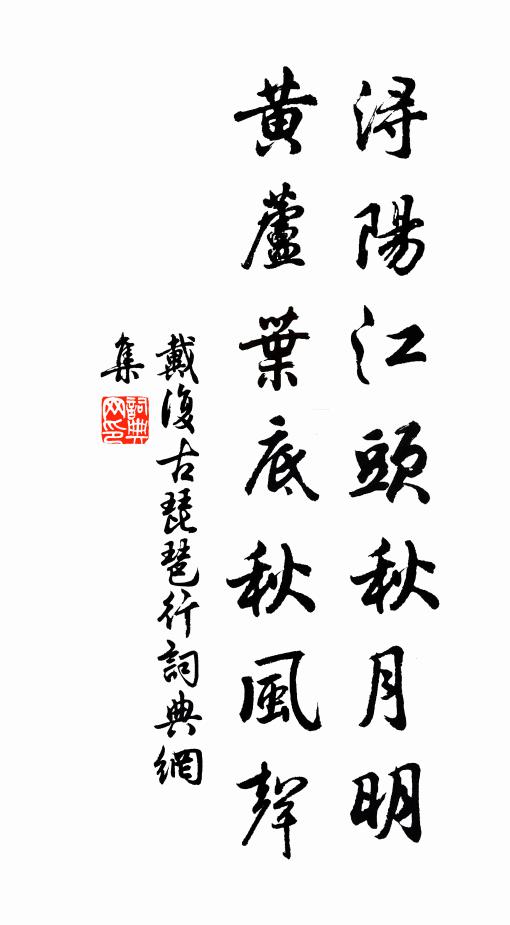 潯陽江頭秋月明
黃蘆葉底秋風聲
戴復古琵琶行詞典網
集
詞典
网印